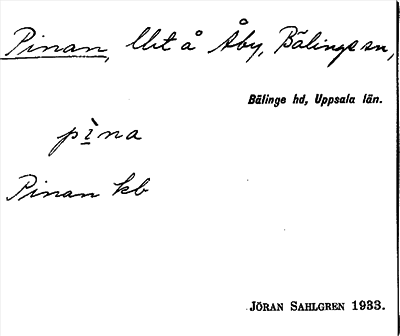 Pinan, llt å Åby, Bälinge sn,
Bälinge hd, Uppsala län.
pìna
Pinan kb
JÖRAN SAHLGREN 1933.